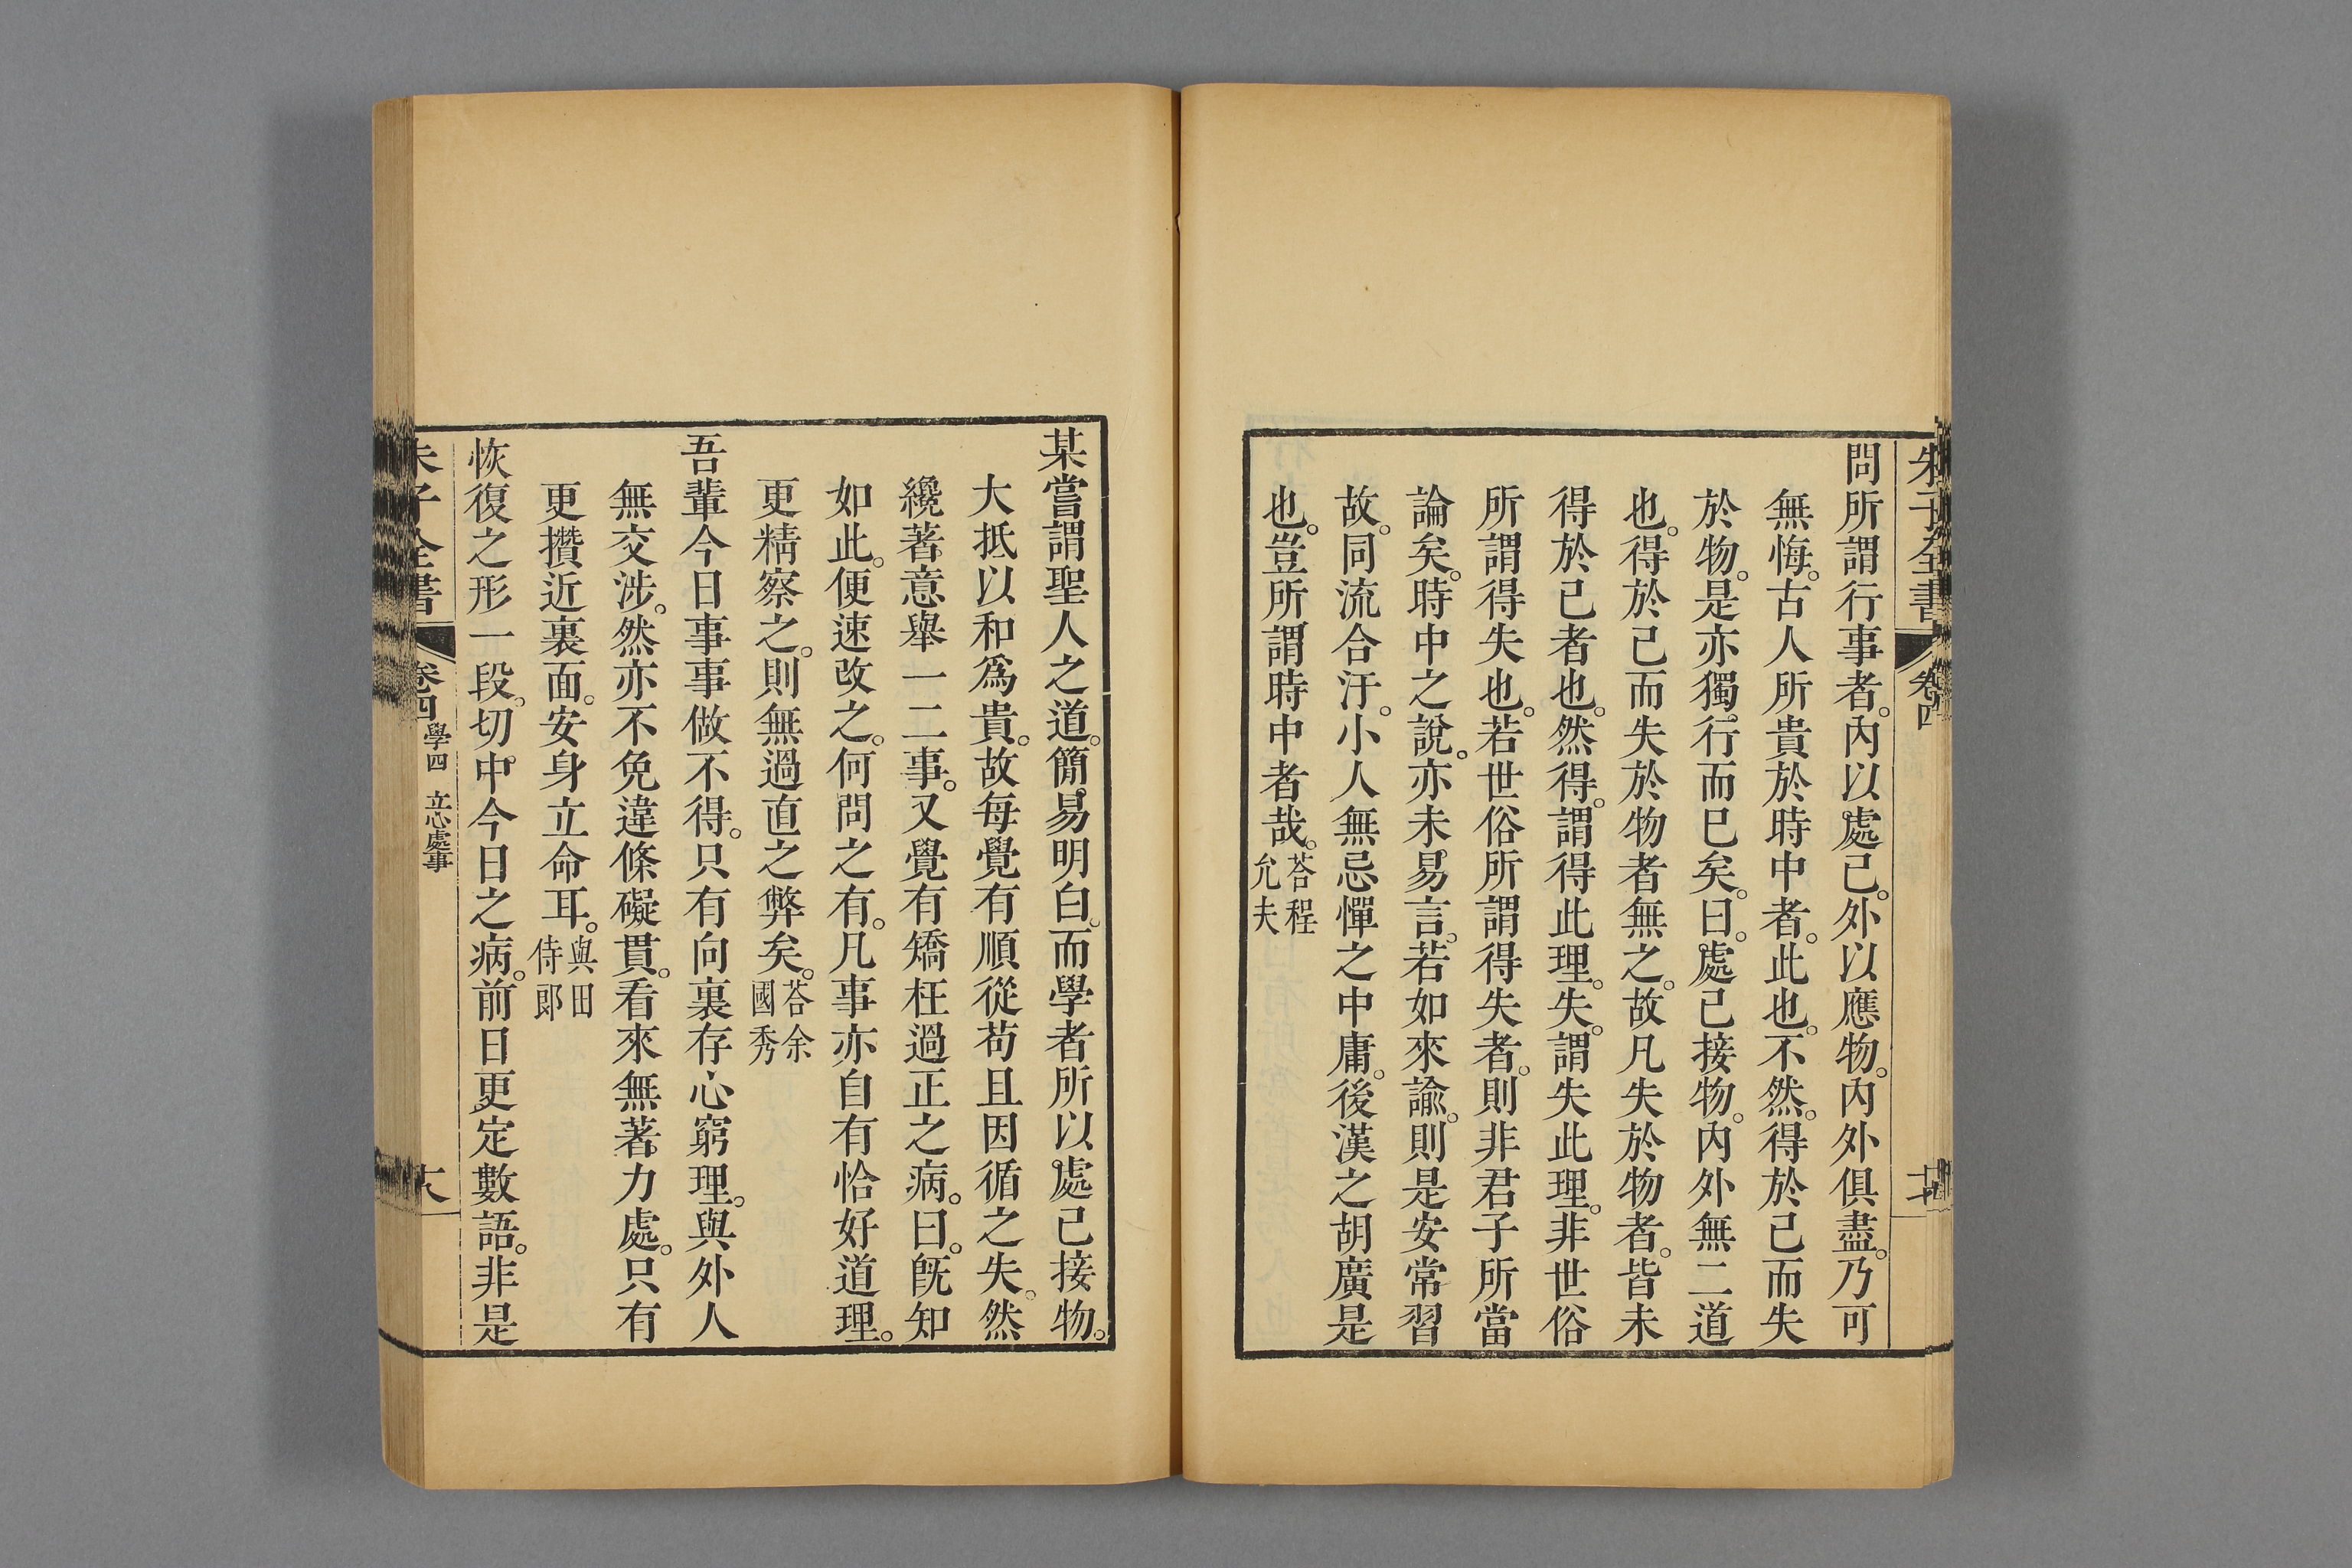 朱子全書 卷四
問所謂行事者。內以處己。外以應物。內外俱盡。乃可
無悔。古人所貴於時中者。此也。不然。得於己而失
於物。是亦獨行而已矣。曰。處己接物。內外無二道
也。得於己而失於物者無之。故凡失於物者。皆未
得於己者也。然得。謂得此理。失。謂失此理。非世俗
所謂得失也。若世俗所謂得失者。則非君子所當
論矣。時中之說。亦未易言。若如來諭。則是安常習
故。同流合汙。小人無忌憚之中庸。後漢之胡廣是
也。豈所謂時中者哉。荅程允夫
某嘗謂聖人之道。簡易明白。而學者所以處己接物。
大抵以和為貴。故每覺有順從苟且因循之失。然
纔著意舉一二事。又覺有矯枉過正之病。曰。旣知
如此。便速改之。何問之有。凡事亦自有恰好道理。
更精察之。則無過直之弊矣。荅余國秀
吾輩今日事事做不得。只有向裏存心窮理。與外人
無交涉。然亦不免違條礙貫。看來無著力處。只有
更攢近裏面。安身立命耳。與田侍郞
恢復之形一段。切中今日之病。前日更定數語。非是
朱子全書 卷四 學四 立心處事 十八